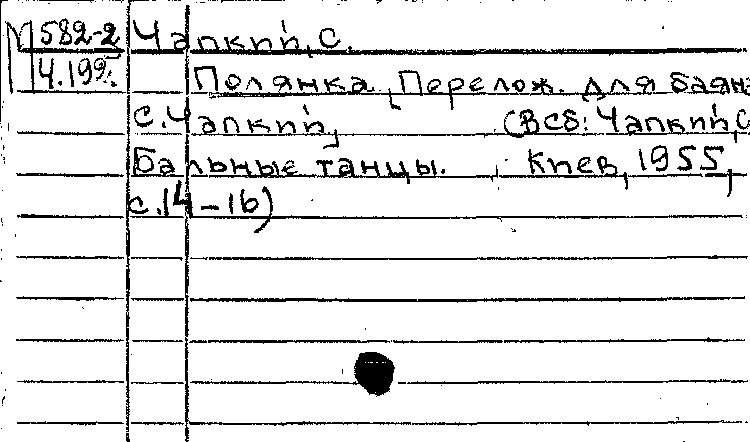 М 582-2 Чапкий, С.
Ч.199 Полянка. Перелож. для баяна
С.Чапкий, (В сб: Чапкий, С
Бальные танцы. Киев, 1955,
с.14-16)